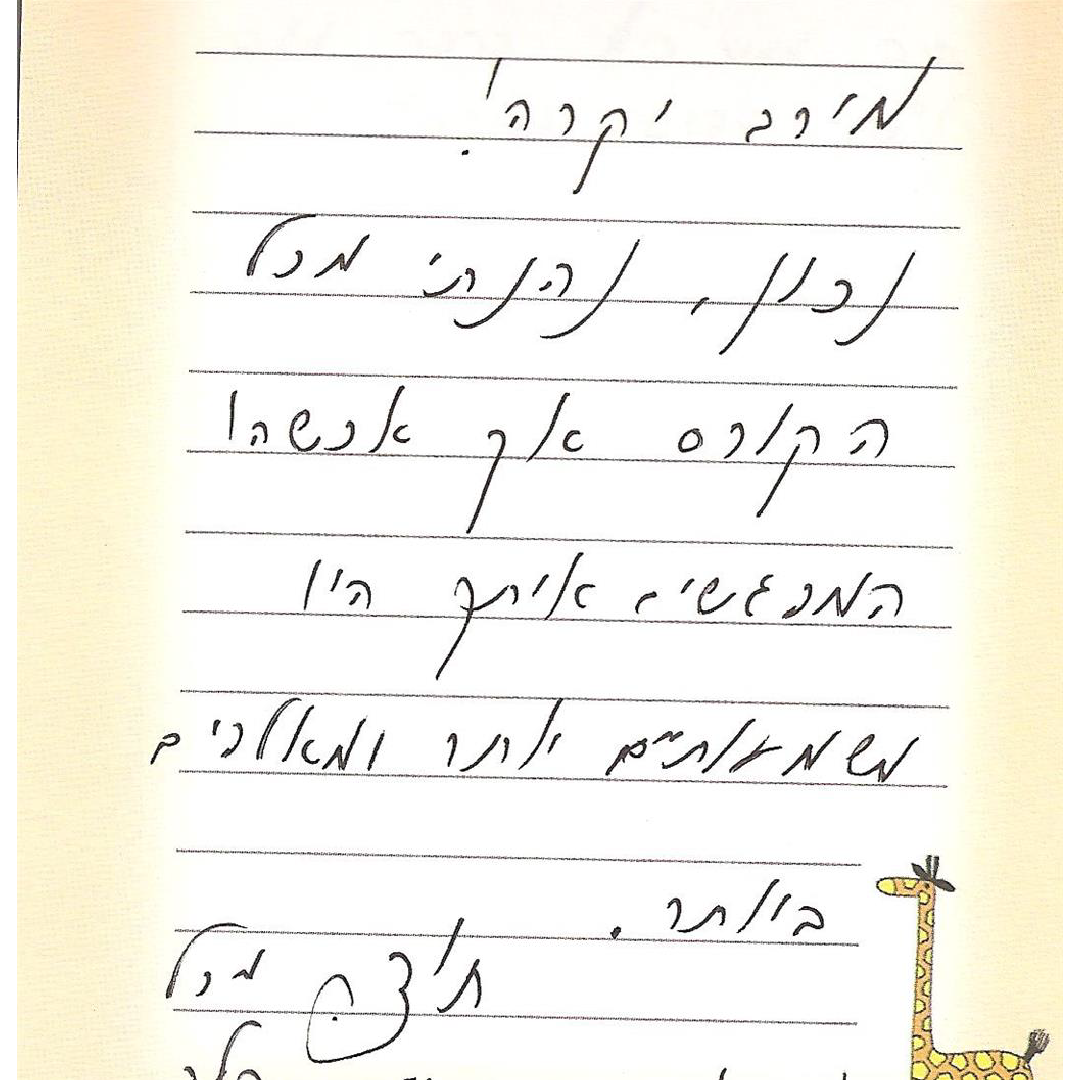 מירב יקרה!
נכון, נהנתי מכל
הקורס אך אכשהו
המפגשים איתך היו
משמעותיים יותר ומאלפים
ביותר.
מכל